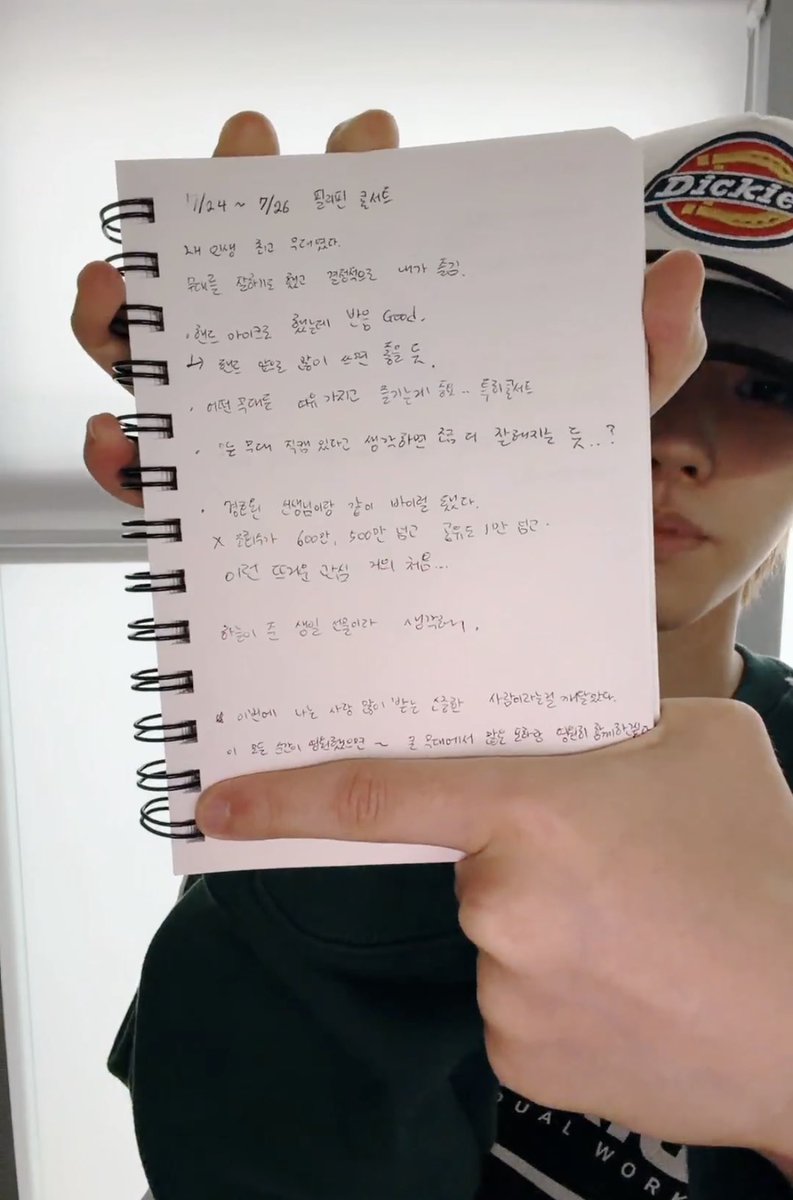 7/24 ~ 7/26 필리핀 콘서트
내 인생 최고 무대였다.
무대를 잘하기도 했고 결정적으로 내가 즐김.
· 핸드 마이크로 했는데 반응 Good.
↳ 핸드 앞으로 많이 쓰면 좋을 듯.
· 어떤 무대를 여유 가지고 즐기는게 중요.. 투히콘서트
· 무대 직캠 있다고 생각하면 조금 더 잘해지는 듯..?
· 선생님이랑 같이 바이럴 됐다.
X 조회수가 600만, 500만 넘고 공유는 1만 넘고.
이런 뜨거운 관심 거의 처음...
하늘이 준 생일 선물이라 생각하니.
이번에 나는 사랑 많이 받는 소중한 사람이라는걸 깨달았다.
이 모든 순간이 영원했으면 ~ 큰 무대에서 영원히 함께하겠
Dickie
DUAL WORK